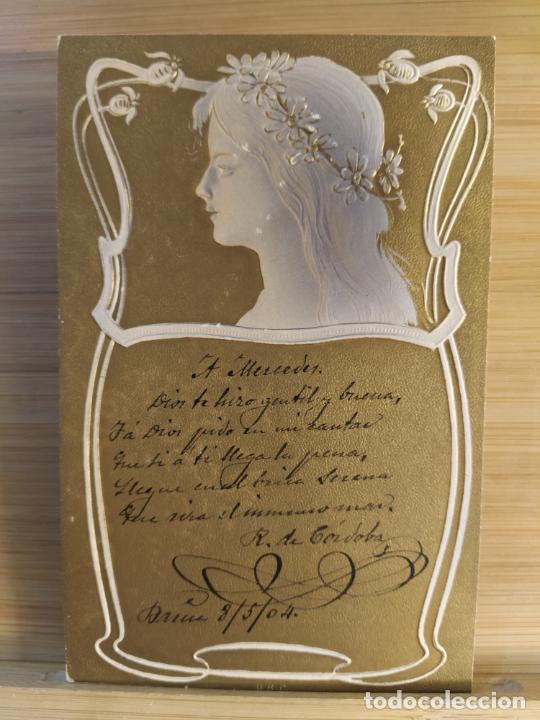 A Mercedes.
Dios te hizo gentil y buena,
Y á Dios pido en mi cantar
Que si á ti llega la pena,
Llegue en el brisa serena
Que riza el inmenso mar.
R. de Córdoba
8/5/04.
todocoleccion.net